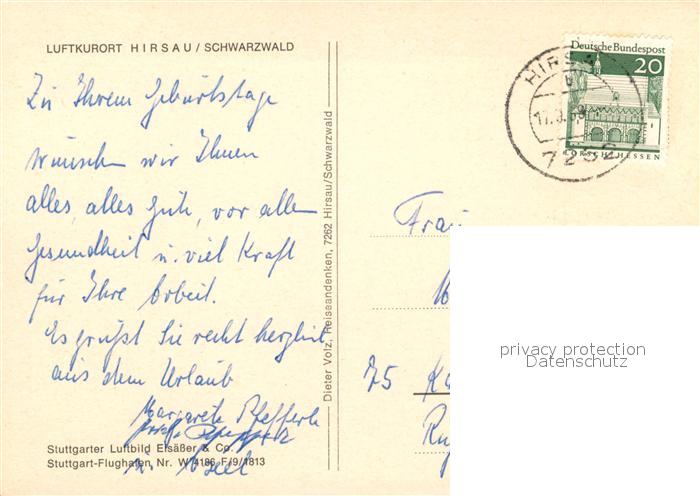 LUFTKURORT HIRSAU / SCHWARZWALD
Zu Ihrem Geburtstage
wünschen wir Ihnen
alles, alles Gute, vor allem
Gesundheit u. viel Kraft
für Ihre Arbeit.
Es grüßt Sie recht herzlich
aus dem Urlaub
Margarete Pfefferle
u.
Stuttgarter Luftbild Elsäßer & Co.
Stuttgart-Flughafen, Nr. W 4186 F/9/1813
Dieter Volz, Reiseandenken, 7262 Hirsau/Schwarzwald
Deutsche Bundespost
20
LORSCH/HESSEN
HIRSAU
7262
Frau
75
privacy protection
Datenschutz